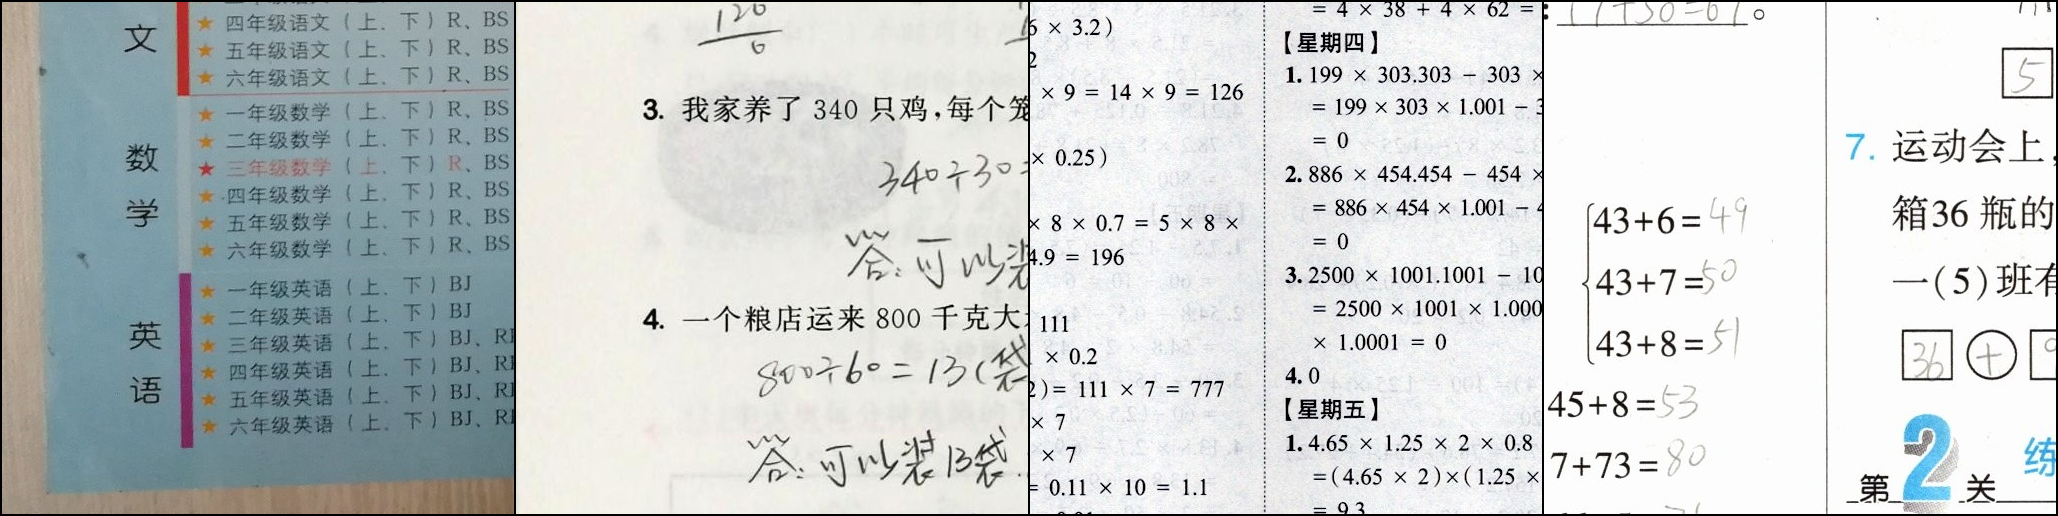 文
★四年级语文（上、下）R、BS
★五年级语文（上、下）R、BS
★六年级语文（上、下）R、BS
数学
★一年级数学（上、下）R、BS
★二年级数学（上、下）R、BS
★三年级数学（上、下）R、BS
★四年级数学（上、下）R、BS
★五年级数学（上、下）R、BS
★六年级数学（上、下）R、BS
英语
★一年级英语（上、下）BJ
★二年级英语（上、下）BJ
★三年级英语（上、下）BJ、
★四年级英语（上、下）BJ、
★五年级英语（上、下）BJ、
★六年级英语（上、下）BJ、
120
0
3. 我家养了 340 只鸡,每个笼
340÷30=
答:可以装
4. 一个粮店运来 800 千克大
800÷60=13(袋
答:可以装13袋.
× 3.2)
2
× 9 = 14 × 9 = 126
× 0.25)
× 8 × 0.7 = 5 × 8 ×
4.9 = 196
111
× 0.2
2)= 111 × 7 = 777
× 7
× 7
= 0.11 × 10 = 1.1
= 4 × 38 + 4 × 62 =
【星期四】
1. 199 × 303.303 − 303 ×
= 199 × 303 × 1.001 −
= 0
2. 886 × 454.454 − 454 ×
= 886 × 454 × 1.001 −
= 0
3. 2500 × 1001.1001 − 10
= 2500 × 1001 × 1.000
× 1.0001 = 0
4. 0
【星期五】
1. 4.65 × 1.25 × 2 × 0.8
=(4.65 × 2)×(1.25 ×
= 9.3
17+50=67。
43+6=49
43+7=50
43+8=51
45+8=53
7+73=80
5
7. 运动会上,
箱36 瓶的
一(5)班有
36 +
第2关
练